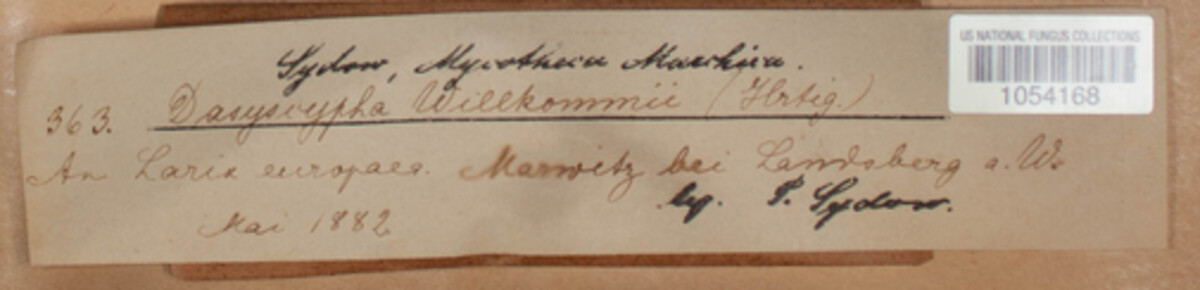 Sydow, Mycotheca Marchica.
363. Dasyscypha Willkommii (Hrtig.)
An Larix europaea. Marwitz bei Landsberg a. W.
leg. P. Sydow.
Mai 1882
US NATIONAL FUNGUS COLLECTIONS
1054168